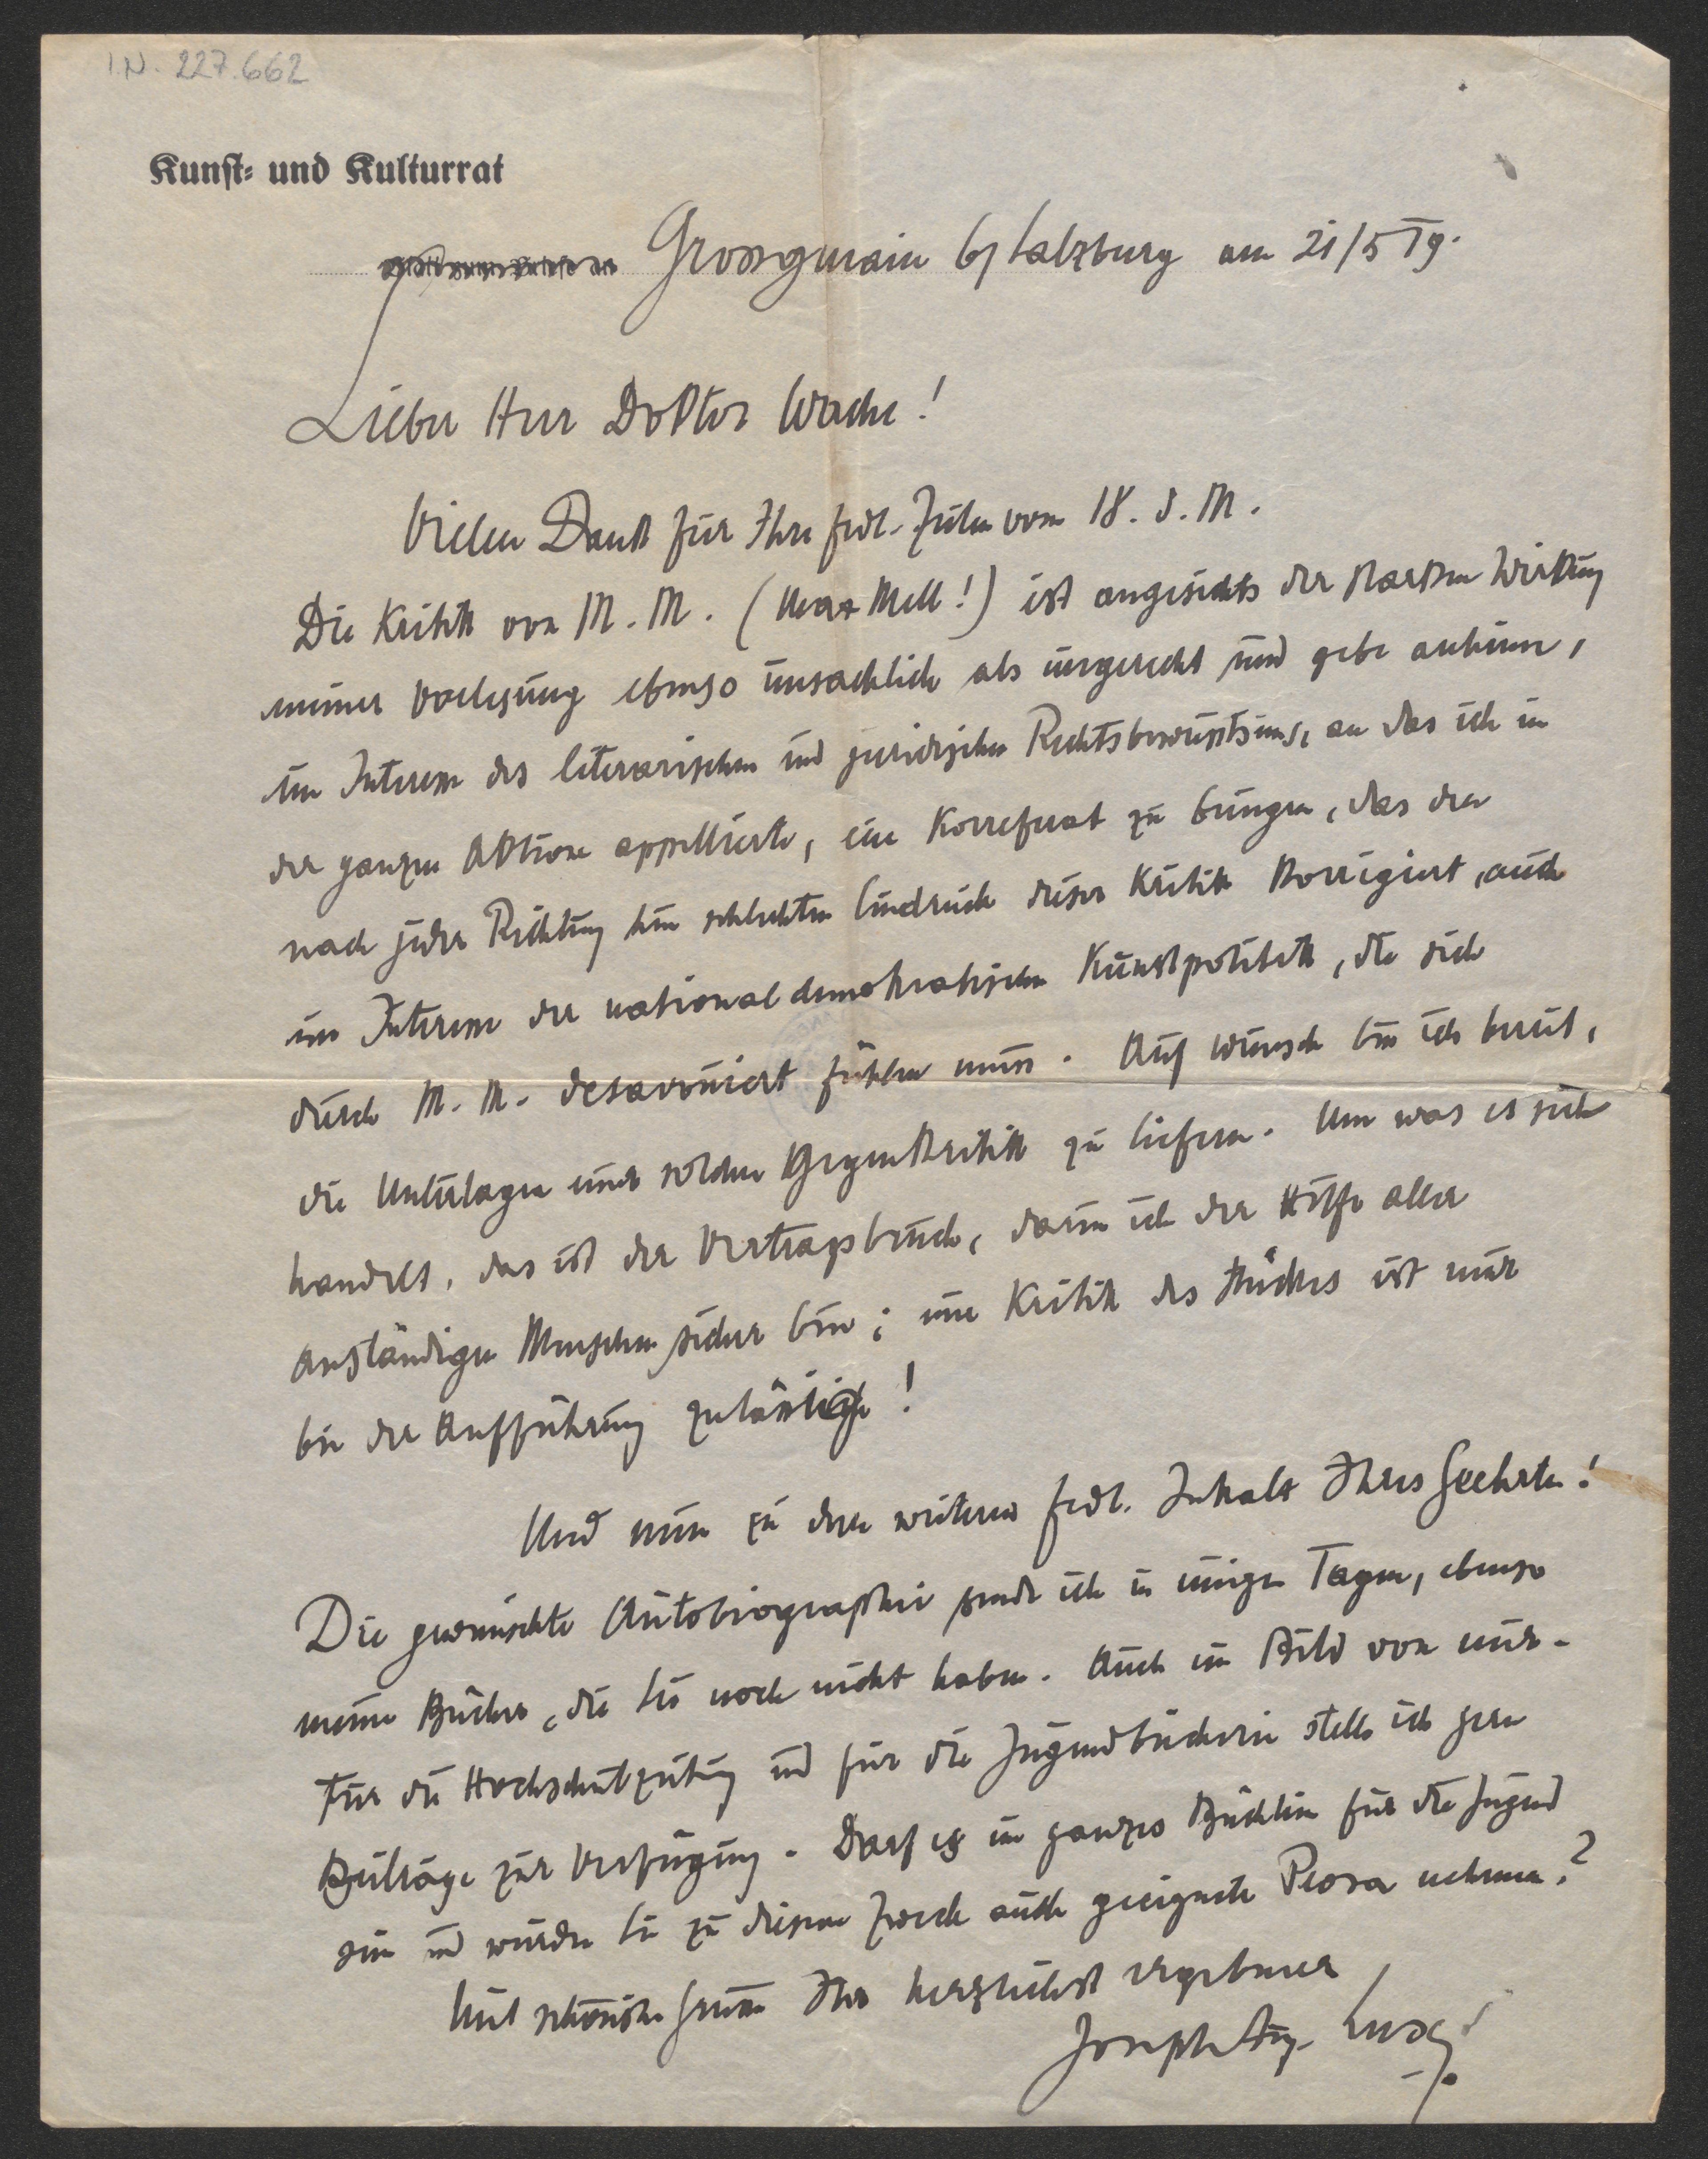 I.N. 227.662
Kunst- und Kulturrat
Grossgmain b/ Salzburg am 21/5 19.
Lieber Herr Doktor Wache!
Vielen Dank für Ihre frdl. Zeilen vom 18. d. M.
Die Kritik von M. M. (Max Mell!) ist angesichts der starken Wirkung
meiner Vorlesung ebenso unsachlich als ungerecht und gebe anheim,
im Interesse des literarischen und juridischen Rechtsbewusstseins, an das ich in
der ganzen Aktion appellierte, ein Korreferat zu bringen, das den
nach jeder Richtung hin schlechten Eindruck dieser Kritik korrigiert, auch
im Interesse der nationaldemokratischen Kunstpolitik, die sich
durch M. M. desavouiert fühlen muss. Auf Wunsch bin ich bereit,
die Unterlagen einer solchen Gegenkritik zu liefern. Um was es sich
handelt, das ist der Vertragsbruch, darin ich der Hilfe aller
anständigen Menschen sicher bin; eine Kritik des Stückes ist nur
bei der Aufführung zulässig!
Und nun zu dem weiteren frdl. Inhalt Ihres Geehrten!
Die gewünschte Autobiographie sende ich in einigen Tagen, ebenso
meine Bücher, die Sie noch nicht haben. Auch ein Bild von mir.
Für die Hochschulzeitung und für die Jugendbücherei stelle ich gern
Beiträge zur Verfügung. Darf es ein ganzes Büchlein für die Jugend
sein und würden Sie zu diesem Zweck auch geeignete Prosa nehmen?
Mit schönsten Grüssen Ihr herzlichst ergebener
Joseph Aug. Lux